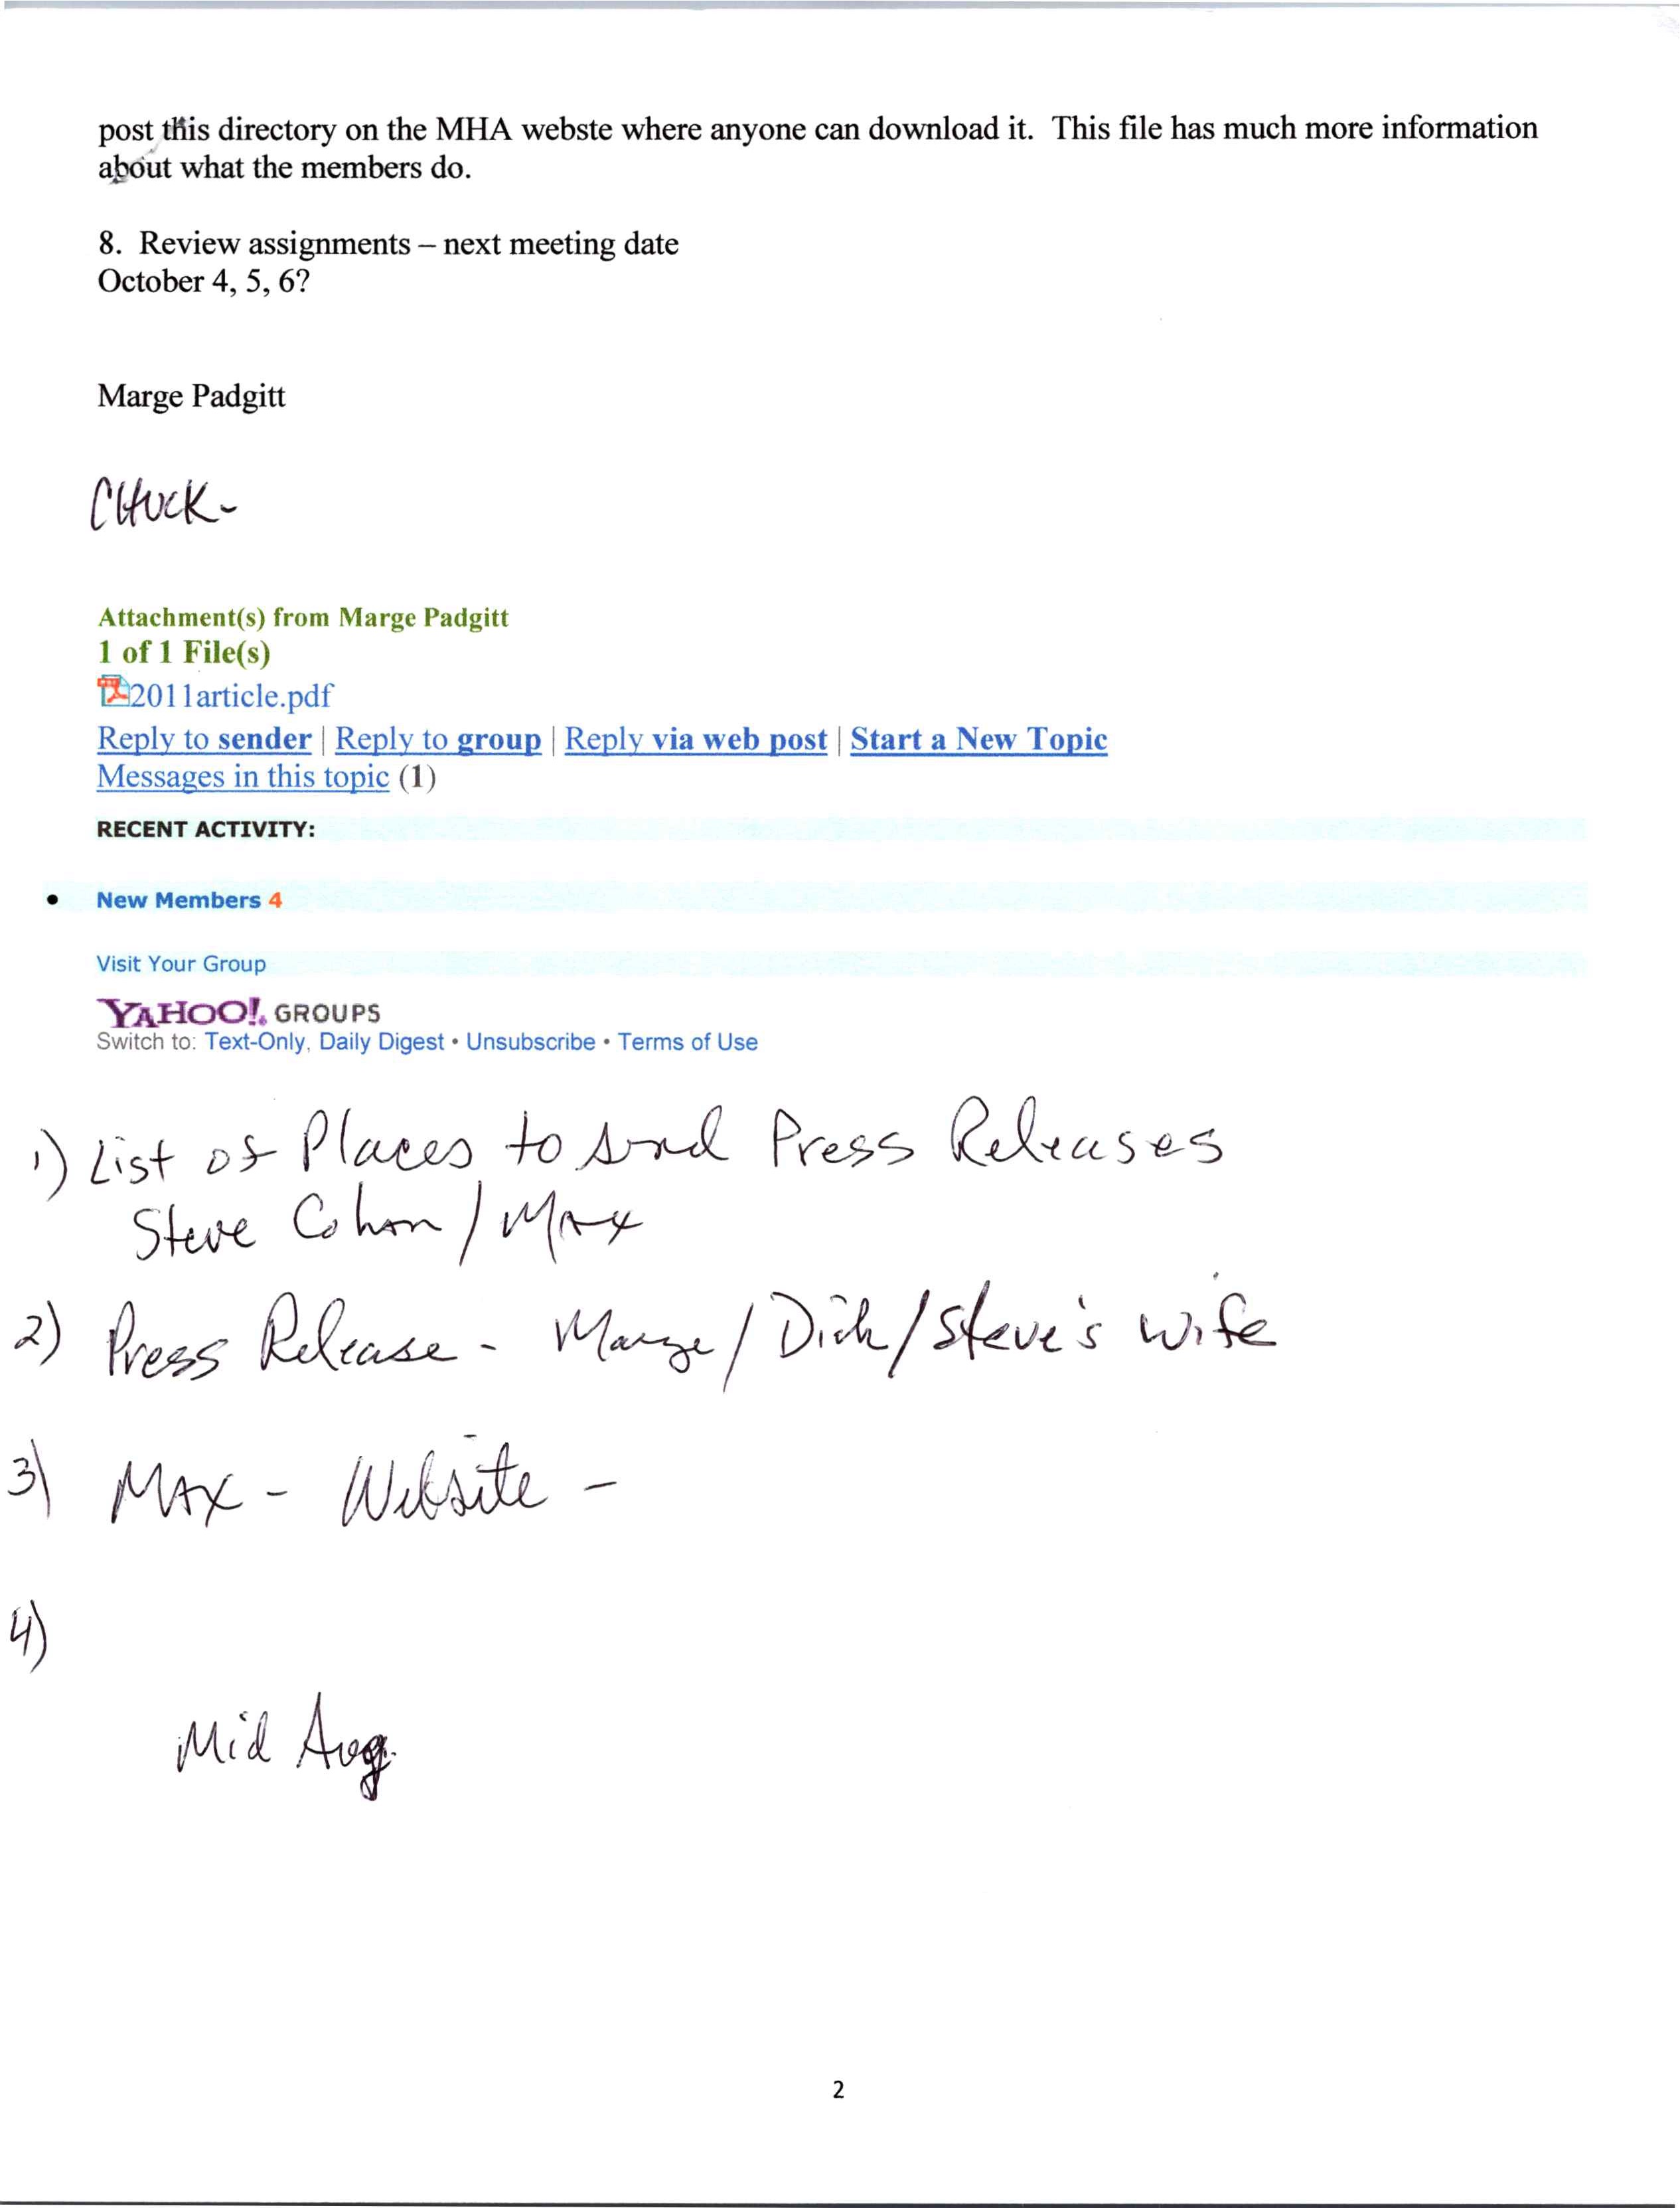 post this directory on the MHA webste where anyone can download it.  This file has much more information
about what the members do.
8.  Review assignments – next meeting date
October 4, 5, 6?
Marge Padgitt
CHUCK-
Attachment(s) from Marge Padgitt
1 of 1 File(s)
2011article.pdf
Reply to sender | Reply to group | Reply via web post | Start a New Topic
Messages in this topic (1)
RECENT ACTIVITY:
• New Members 4
Visit Your Group
YAHOO! GROUPS
Switch to: Text-Only, Daily Digest • Unsubscribe • Terms of Use
1) List of Places to send Press Releases
Steve Cohon / MAX
2) Press Release - Marge / Dick / Steve's wife
3) MAX - Website -
4)
Mid Aug.
2